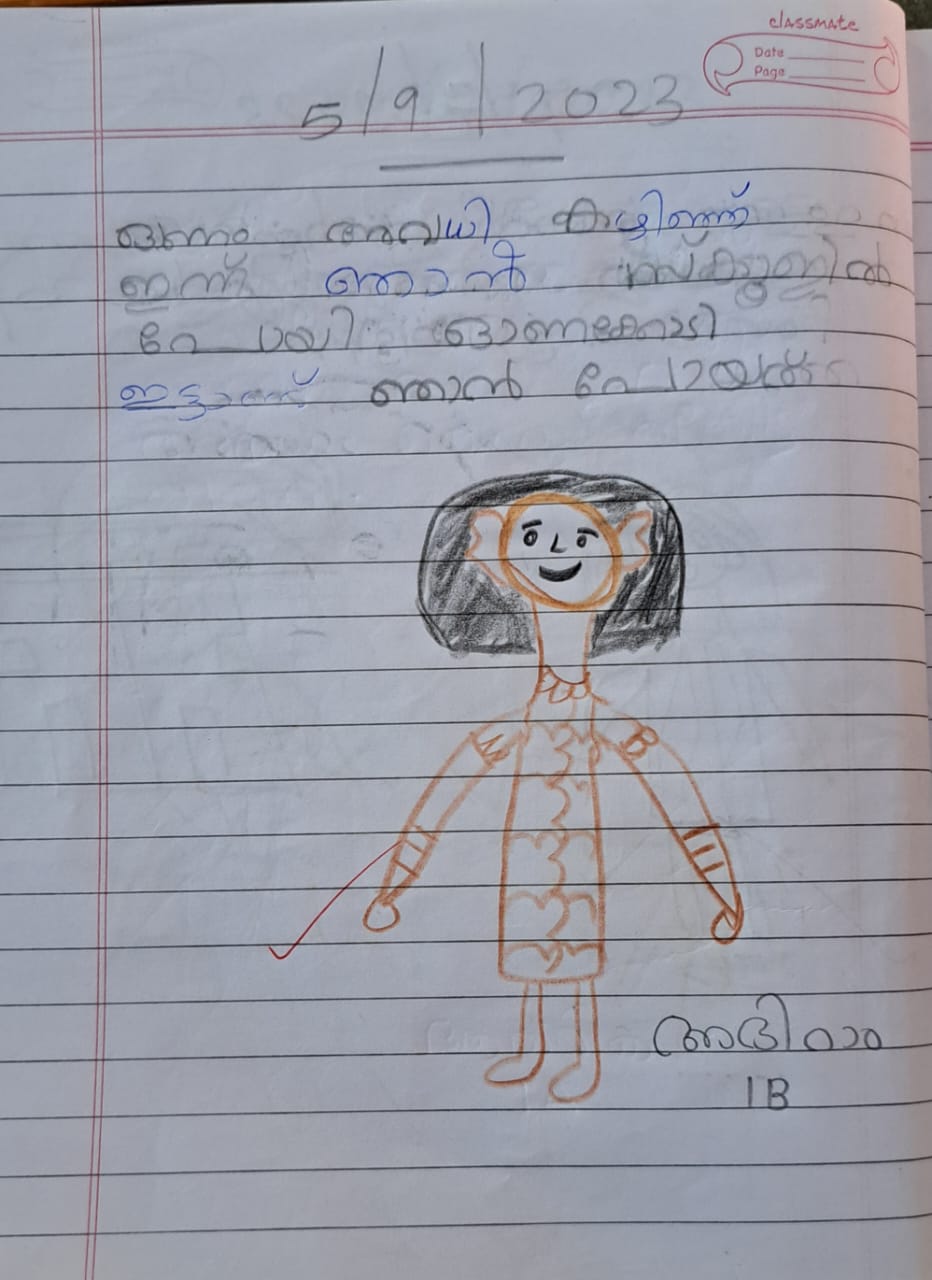 classmate
Date
Page
5/9/2023
ഓണം അവധി കഴിഞ്ഞ്
ഇന്ന് ഞാൻ സ്കൂളിൽ
പോയി ഓണക്കോടി
ഇട്ടാണ് ഞാൻ പോയത്
അഭിറാം
1B